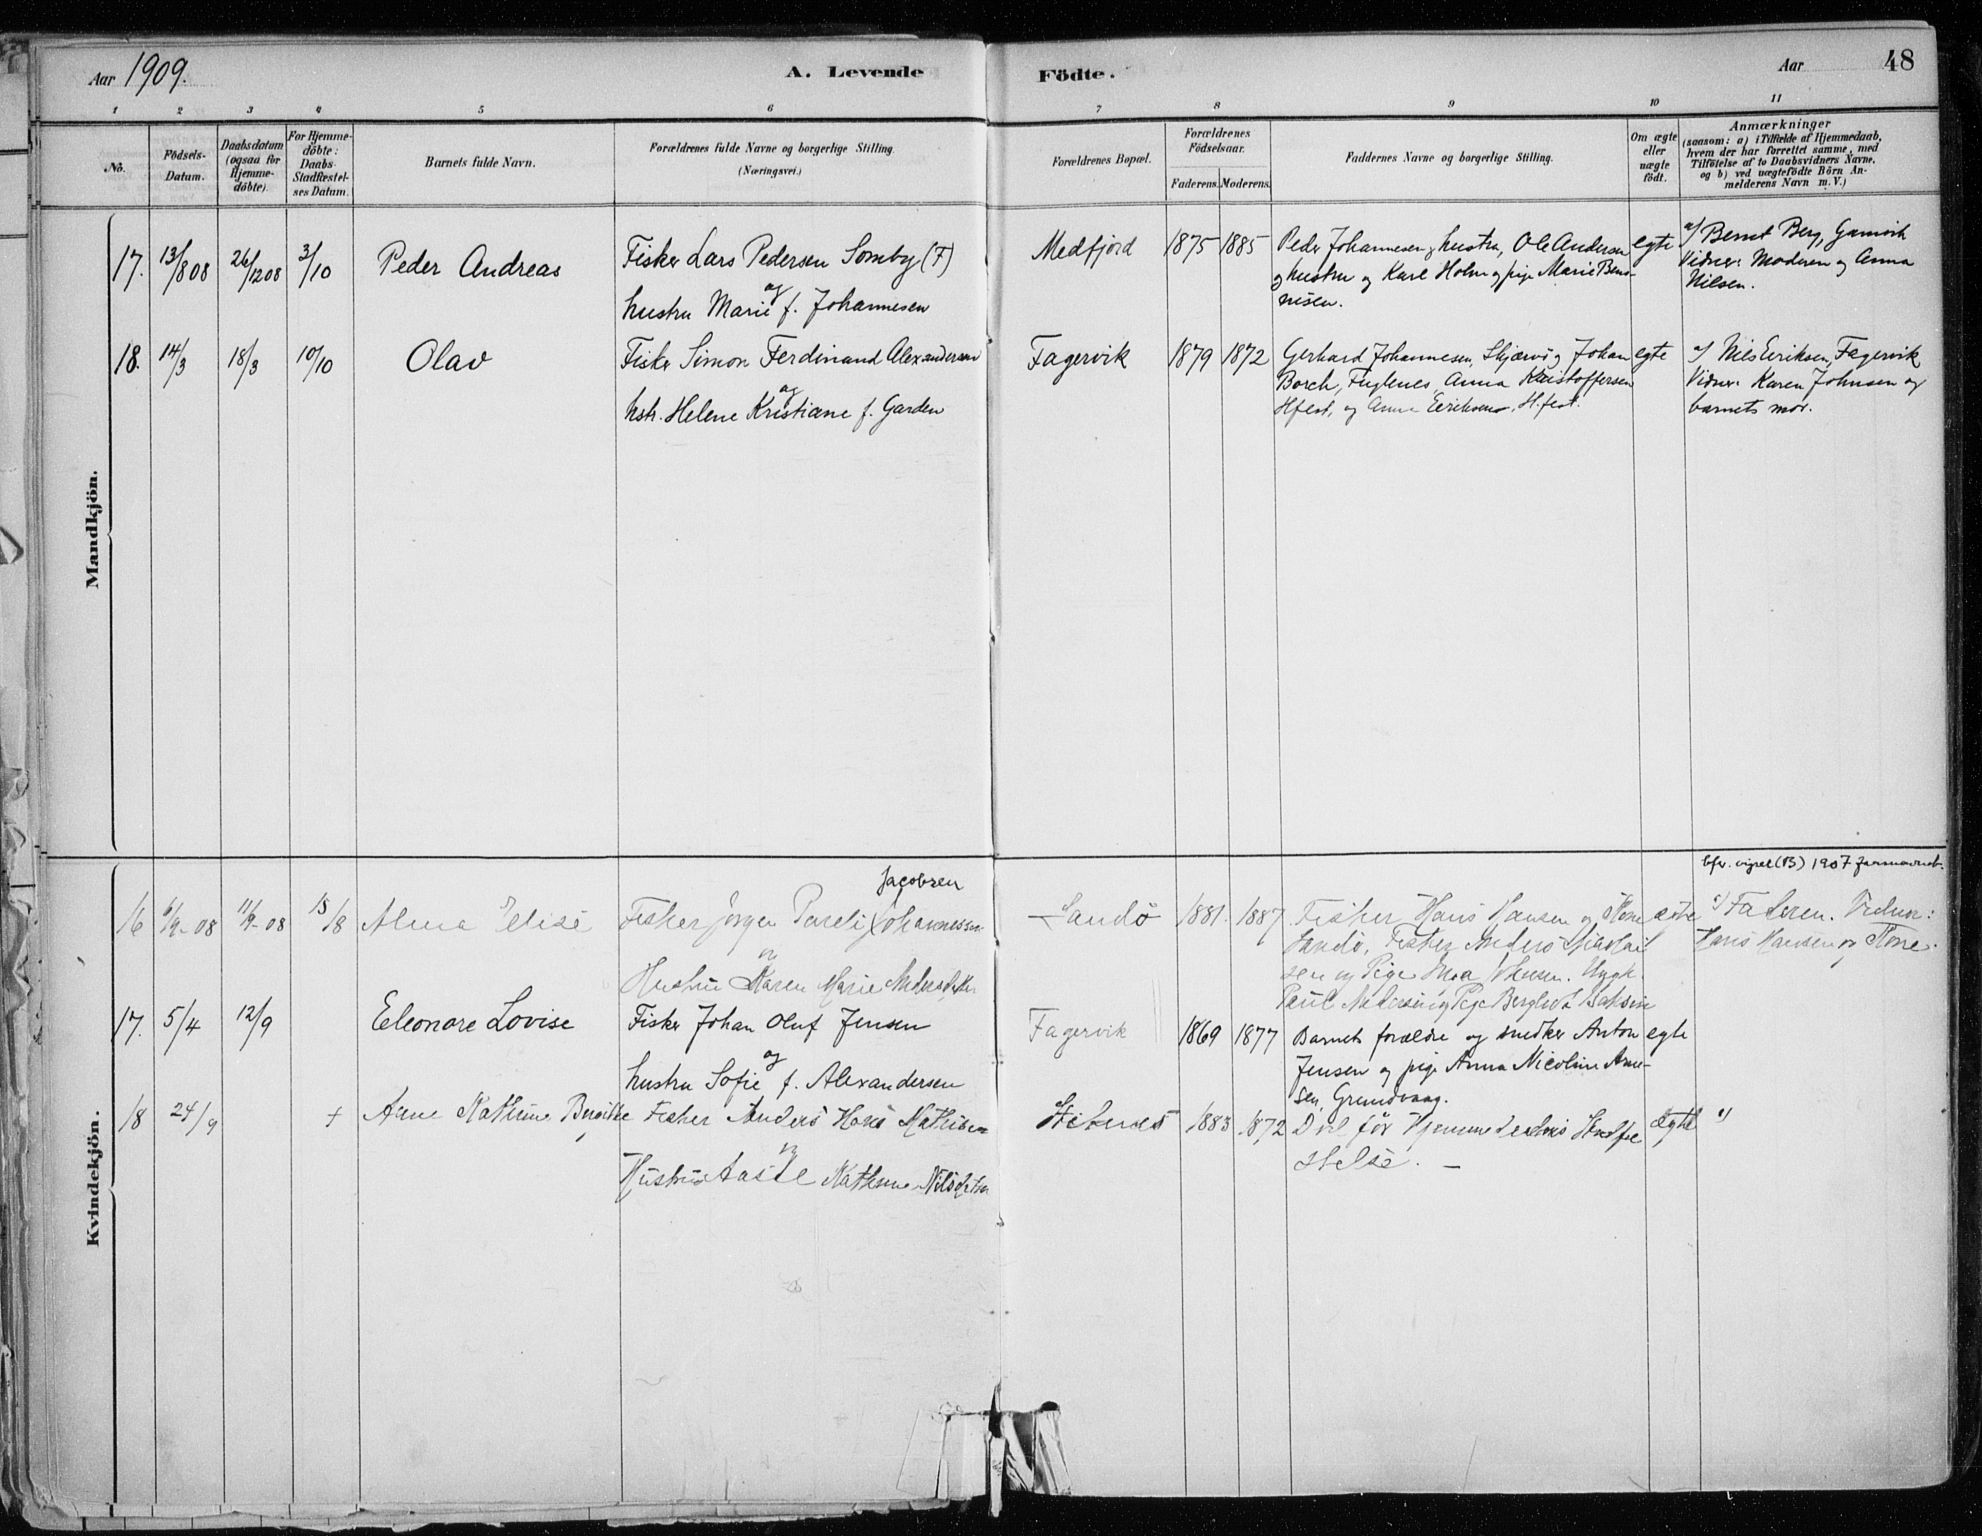 Aar 1909.
A. Levende
Födte.
Aar
48
1 2 3 4 5 6 7 8 9 10 11
No.
Födsels-
Datum.
Daabsdatum
(ogsaa for
Hjemme-
döbte).
For Hjemme-
döbte:
Daabs-
Stadfæstel-
ses Datum.
Barnets fulde Navn.
Forældrenes fulde Navne og borgerlige Stilling
(Næringsvei.)
Forældrenes Bopæl.
Forældrenes
Födselsaar.
Faderens. Moderens.
Faddernes Navne og borgerlige Stilling.
Om ægte
eller
uægte
födt.
Anmærkninger
(saasom: a) i Tilfælde af Hjemmedaab,
hvem der har forrettet samme, med
Tilföielse af to Daabsvidners Navne,
og b) ved uægtefödte Börn An-
melderens Navn m. V.)
Mandkjön.
17. 13/8 08 26/12 08 3/10 Peder Andreas
Fisker Lars Pedersen Somby (F)
og
hustru Marie f. Johannesen
Medfjord 1875 1885
Peder Johannesen og hustru, Ole Andersen
og hustru og Karl Holm og pige Marie Bens-
nisen.
egte
a/ Bernt Berg, Gamvik
Vidner: Moderen og Anna
Nilsen.
18. 14/3 18/3 10/10 Olav
Fisker Simon Ferdinand Alexandersen
og
hstr. Helene Kristiane f. Garden
Fagervik 1879 1872
Gerhard Johannesen, Skjærvö, Johan
Borch, Fuglenes, Anna Kristoffersen
Hfest, og Anna Eriksen, H.fest.
egte
a/ Nils Eriksen, Fagervik
Vidner: Karen Johnsen og
barnets mor.
Kvindekjön.
bfr. vigsel (B) 1907
16 6/9-08 11/9-08 15/8 Alma Elise
Jacobsen
Fisker Jörgen Pareli Johannessen
og
Hustru Karen Marie Andersdatter
Sandö 1881. 1887
Fisker Hans Hansen og Kone
Sandö, Fisker Anders
sen og Pige Johnsen. Ungk.
Paul Andersen og Pige Bergliot
ægte
a/ Faderen. Vidner:
Hans Hansen og Kone.
17. 5/4 12/9 Eleonore Lovise
Fisker Johan Oluf Jensen
og
hustru Sofie f. Alexandersen
Fagervik 1869 1877
Barnets forældre og snedker Anton
Jensen og pige Anna Nicoline Arne-
sen, Grundvaag.
egte
18 24/9 + Anne Kathrine Bergitte
Fisker Anders Hans Mathisen
og
Hustru Kathrine Nilsdatter
1883 1872
Död för Hjemmedaabs Stadfæ
stelse. –
Ægte a/